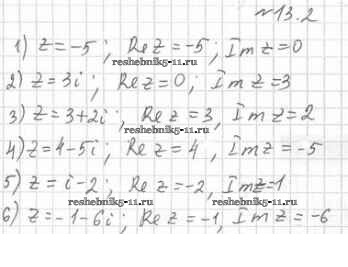 №13.2
1) z = -5; Re z = -5; Im z = 0
2) z = 3i; Re z = 0; Im z = 3
reshebnik5-11.ru
3) z = 3+2i; Re z = 3, Im z = 2
reshebnik5-11.ru
4) z = 4-5i; Re z = 4, Im z = -5
5) z = i-2; Re z = -2, Im z = 1
reshebnik5-11.ru
6) z = -1-6i; Re z = -1, Im z = -6
reshebnik5-11.ru